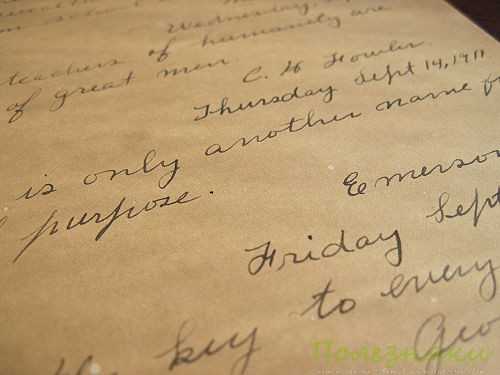 Wednesday,
teachers of humanity are
of great men.
C. H. Fowler.
Thursday Sept 14, 1911
is only another name
purpose.
Emerson
Friday Sept
key to every
Geo
Полезняки